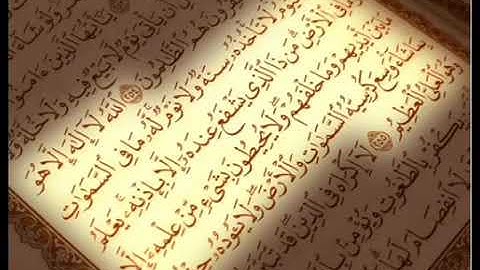 يَٰٓأَيُّهَا ٱلَّذِينَ ءَامَنُوٓا۟
أَن يَأْتِىَ يَوْمٌ لَّا بَيْعٌ فِيهِ وَلَا خُلَّةٌ وَلَا
هُمُ ٱلظَّٰلِمُونَ ٢٥٤ ٱللَّهُ لَآ إِلَٰهَ إِلَّا هُوَ
تَأْخُذُهُۥ سِنَةٌ وَلَا نَوْمٌ لَّهُۥ مَا فِى ٱلسَّمَٰوَٰتِ
ٱلْأَرْضِ مَن ذَا ٱلَّذِى يَشْفَعُ عِندَهُۥٓ إِلَّا بِإِذْنِهِۦ يَعْلَمُ
أَيْدِيهِمْ وَمَا خَلْفَهُمْ وَلَا يُحِيطُونَ بِشَىْءٍ مِّنْ عِلْمِهِۦٓ إِلَّا
شَآءَ وَسِعَ كُرْسِيُّهُ ٱلسَّمَٰوَٰتِ وَٱلْأَرْضَ وَلَا يَـُٔودُهُۥ
وَهُوَ ٱلْعَلِىُّ ٱلْعَظِيمُ ٢٥٥ لَآ إِكْرَاهَ فِى ٱلدِّينِ قَد تَّبَيَّنَ
يَكْفُرْ بِٱلطَّٰغُوتِ وَيُؤْمِنۢ
لَا ٱنفِصَامَ لَهَا